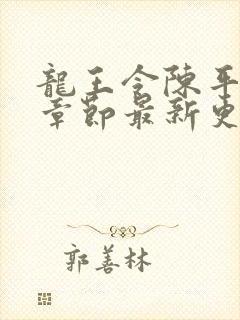 龍王令陳平
章節最新更
郭善林